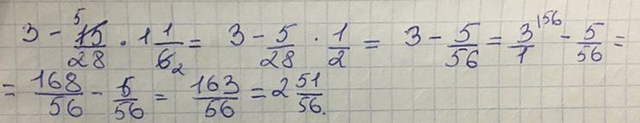 3 - 15⁵/28 · 1 1/6₂ = 3 - 5/28 · 1/2 = 3 - 5/56 = 3/1 ¹⁵⁶ - 5/56 =
= 168/56 - 5/56 = 163/56 = 2 51/56.